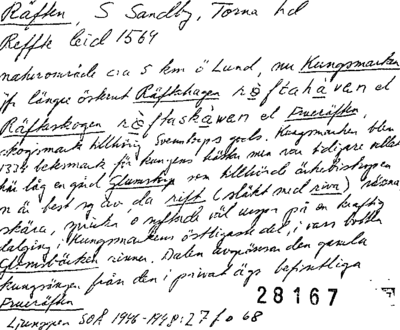 Räften, S Sandby, Torna hd
Reffte leid 1569
naturområde c:a 5 km ö Lund, nu Kungsmarken
jfr längre österut Räftehagen rèftahåvan el
Räfteskogen rèftaskåwan el Frueräften,
skogsmark tillhörig Svenstorps gods. Kungsmarken blev
1334 betesmark för kungens hästar men var tidigare
här låg en gård Glumstorp som tillhörde ärkebiskoppen
n är best ng av da rift (släkt med riva) rämna
skåra, syftar
dalgång, i Kungsmarkens östligaste del, i vars botten
Glumsbäcken rinner. Dalen avgränsar den gamla
kungsängen från den i privat ägo befintliga
Frueräften
28167
Ljunggren SOÅ 1946-1948:27 fo 68